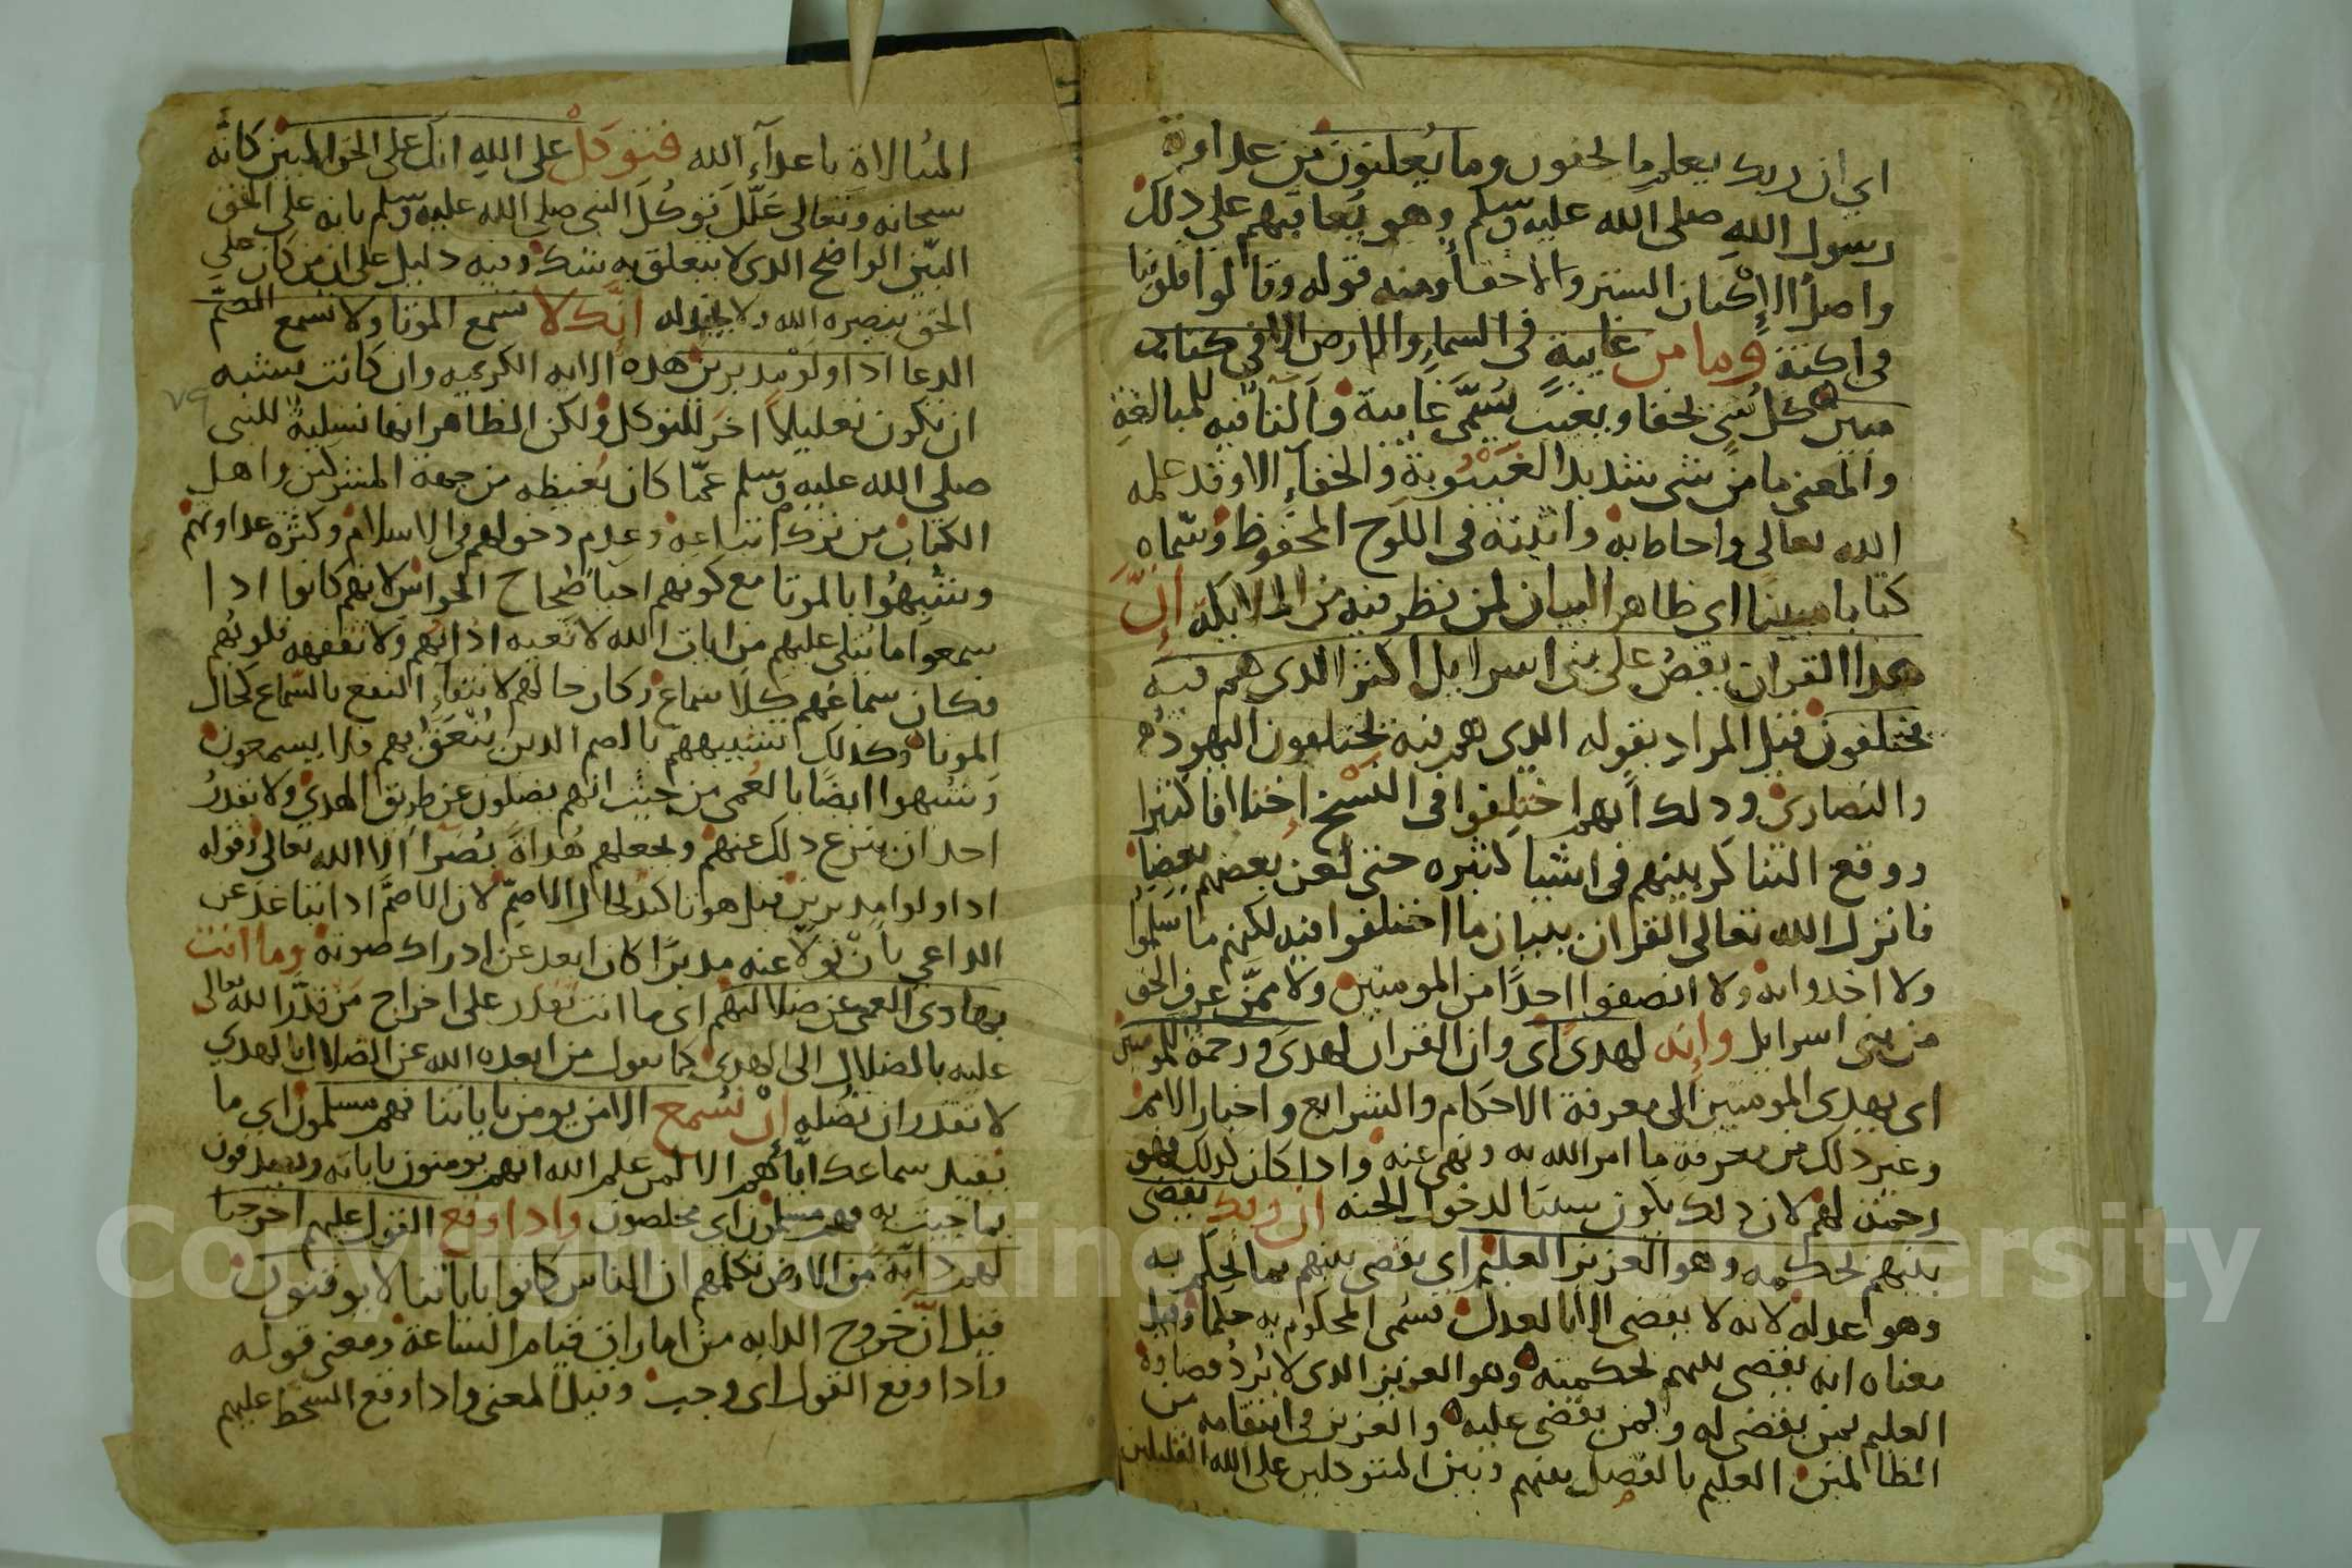 اي ان ربك يعلم ما يخفون وما يعلنون من عداوة
رسول الله صلى الله عليه وسلم وهو يعاقبهم على ذلك
واصل الاكنان الستر والاخفاء ومنه قوله وقالوا قلوبنا
في اكنة وما من غايبة في السماء والارض الا في كتاب
مبين كل شي يخفا ويغيب سمي غايبة والتا فيه للمبالغة
والمعنى ما من شي شديد الغيبوبة والخفاء الا وقد علمه
الله تعالى واحاط به واثبته في اللوح المحفوظ وسماه
كتابا مبينا اي ظاهر البيان لمن نظر فيه من الملايكة ان
هذا القران يقص على بني اسرايل اكثر الذي هم فيه
يختلفون قيل المراد بقوله الذي هم فيه يختلفون اليهود
والنصارى وذلك انهم اختلفوا في المسيح اختلافا كثيرا
ووقع التناكر بينهم في اشيا كثيره حتى لعن بعضهم بعضا
فانزل الله تعالى القران ببيان ما اختلفوا فيه لكنهم ما سلموا
ولا اخذوا به ولا انصفوا احدا من المومنين ولا ممن عرف الحق
من بني اسرايل وانه لهدى اي وان القران لهدى ورحمة للمومنين
اي يهدى المومنين الى معرفة الاحكام والشرايع واخبار الامم
وغير ذلك من معرفة ما امر الله به ونهى عنه واذا كان كذلك فهو
رحمة لهم لان ذلك يكون سببا لدخول الجنه ان ربك يقضى
بينهم بحكمه وهو العزيز العليم اي يقضى بينهم بما يحكم به
وهو عدله لانه لا يقضى الا بالعدل فسمى المحكوم به حكما وقيل
معناه انه يقضى بينهم بحكمته وهو العزيز الذى لا يرد قضاوه
العليم بمن يقضى له وبمن يقضى عليه والعزيز في انتقامه من
الظالمين العليم بالفصل بينهم وبين المتوكلين على الله القليلين
المبالاة باعداء الله فتوكل على الله انك على الحق المبين كانه
سبحانه وتعالى علل توكل النبي صلى الله عليه وسلم بانه على الحق
البين الواضح الذى لا يتعلق به شك وفيه دليل على ان من كان على
الحق ينصره الله ولا يخذله انك لا تسمع الموتا ولا تسمع الصم
الدعا اذا ولو مدبرين هذه الايه الكريمه وان كانت يشبه
ان يكون تعليلا اخر للتوكل ولكن الظاهر انها تسلية للنبى
صلى الله عليه وسلم عما كان يغيظه من جهة المشركين واهل
الكتاب من ترك اتباعه وعدم دخولهم في الاسلام وكثره عداوتهم
وشبهوا بالموتا مع كونهم احيا صحاح الحواس لانهم كانوا اذا
سمعوا ما يتلى عليهم من ايات الله لا تعيه اذانهم ولا تفقهه قلوبهم
فكان سماعهم كلا سماع وكان حالهم لانتفاء النفع بالسماع كحال
الموتا وكذلك تشبيههم بالصم الذين ينعق بهم فلا يسمعون
وشبهوا ايضا بالعمى من حيث انهم يضلون عن طريق الهدى ولا يقدر
احد ان ينزع ذلك عنهم ويجعلهم هداة بصرا الا الله تعالى وقوله
اذا ولوا مدبرين قيل هو تاكيد لحال الاصم لان الاصم اذا تباعد عن
الداعي بان تولا عنه مدبرا كان ابعد عن ادراك صوته وما انت
بهادى العمى عن ضلالتهم اى ما انت تقدر على اخراج من قدر الله تعالى
عليه بالضلال الى الهدى كما نقول من ابعده الله عن الضلال بالهدى
لا تقدر ان تضله ان تسمع الا من يومن باياتنا فهم مسلمون اي ما
يفيد سماعك اياهم الا لمن علم الله انهم يومنون باياته ويصدقون
بما جيت به فهم مسلمون اي مخلصون واذا وقع القول عليهم اخرجنا
لهم دابة من الارض تكلمهم ان الناس كانوا باياتنا لا يوقنون
قيل ان خروج الدابه من امارات قيام الساعة ومعنى قوله
واذا وقع القول اى وجب وقيل المعنى واذا وقع السخط عليهم
٧٩
Copyright © King Saud University